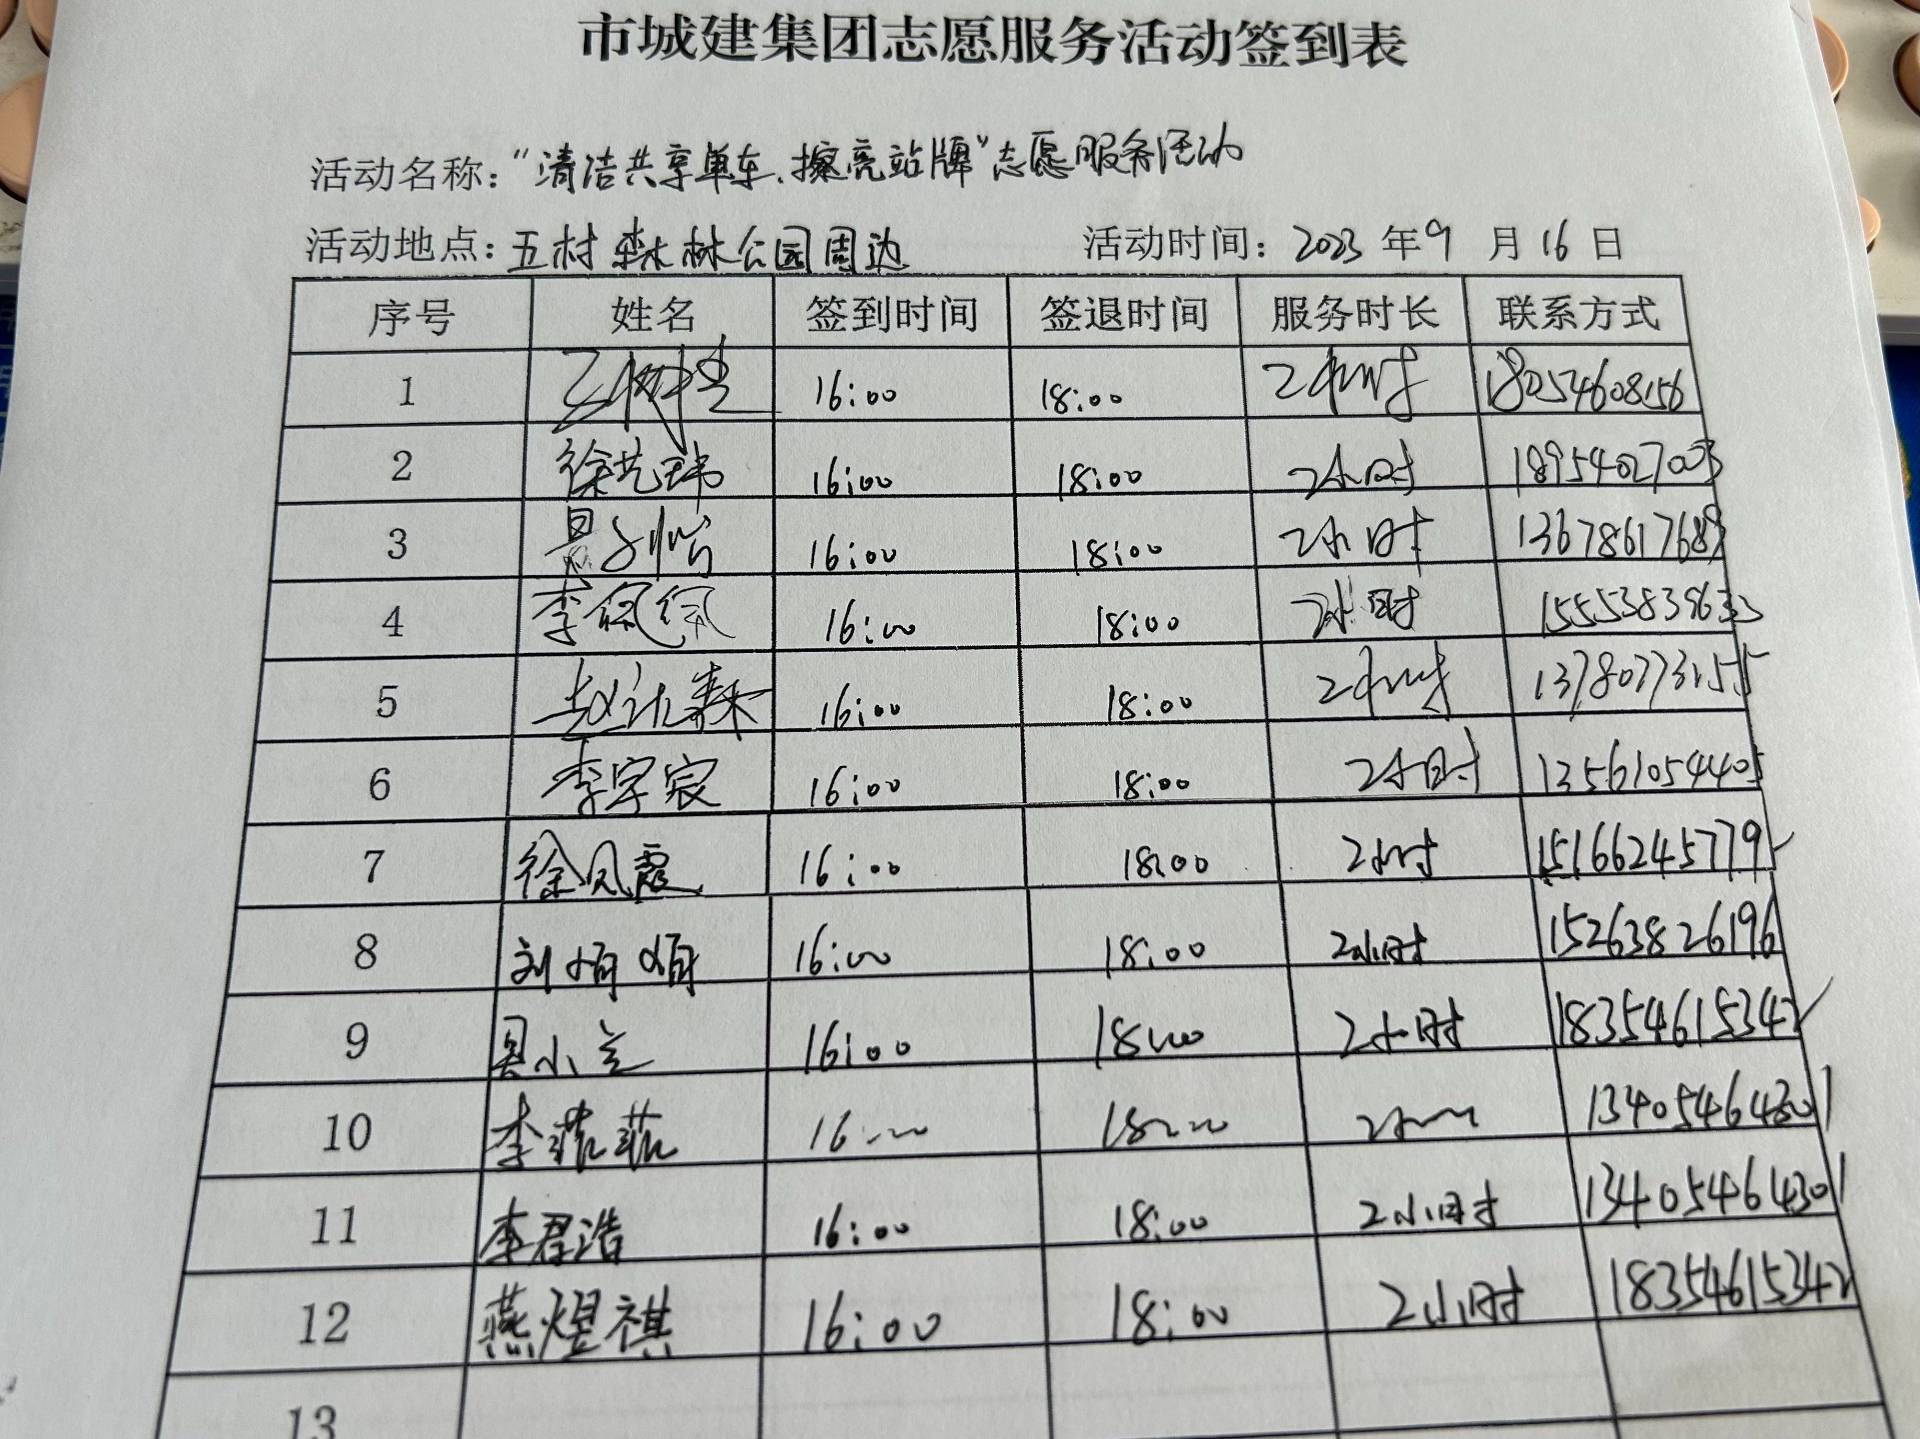 市城建集团志愿服务活动签到表
活动名称：“清洁共享单车、擦亮站牌”志愿服务活动
活动地点：五村森林公园周边 活动时间：2023 年 9 月 16 日
序号 姓名 签到时间 签退时间 服务时长 联系方式
1 16:00 18:00 2小时 18054608156
2 徐艺玮 16:00 18:00 2小时 18954027003
3 16:00 18:00 2小时 13678617689
4 李佩佩 16:00 18:00 2小时 15553838633
5 16:00 18:00 2小时 13780773155
6 李宇宸 16:00 18:00 2小时 13561054405
7 徐凤霞 16:00 18:00 2小时 15166245779
8 刘娟娟 16:00 18:00 2小时 15263826196
9 吴小兰 16:00 18:00 2小时 18354615342
10 李菲菲 16:00 18:00 2小时 13405464301
11 李君浩 16:00 18:00 2小时 13405464301
12 燕煜祺 16:00 18:00 2小时 18354615342
13